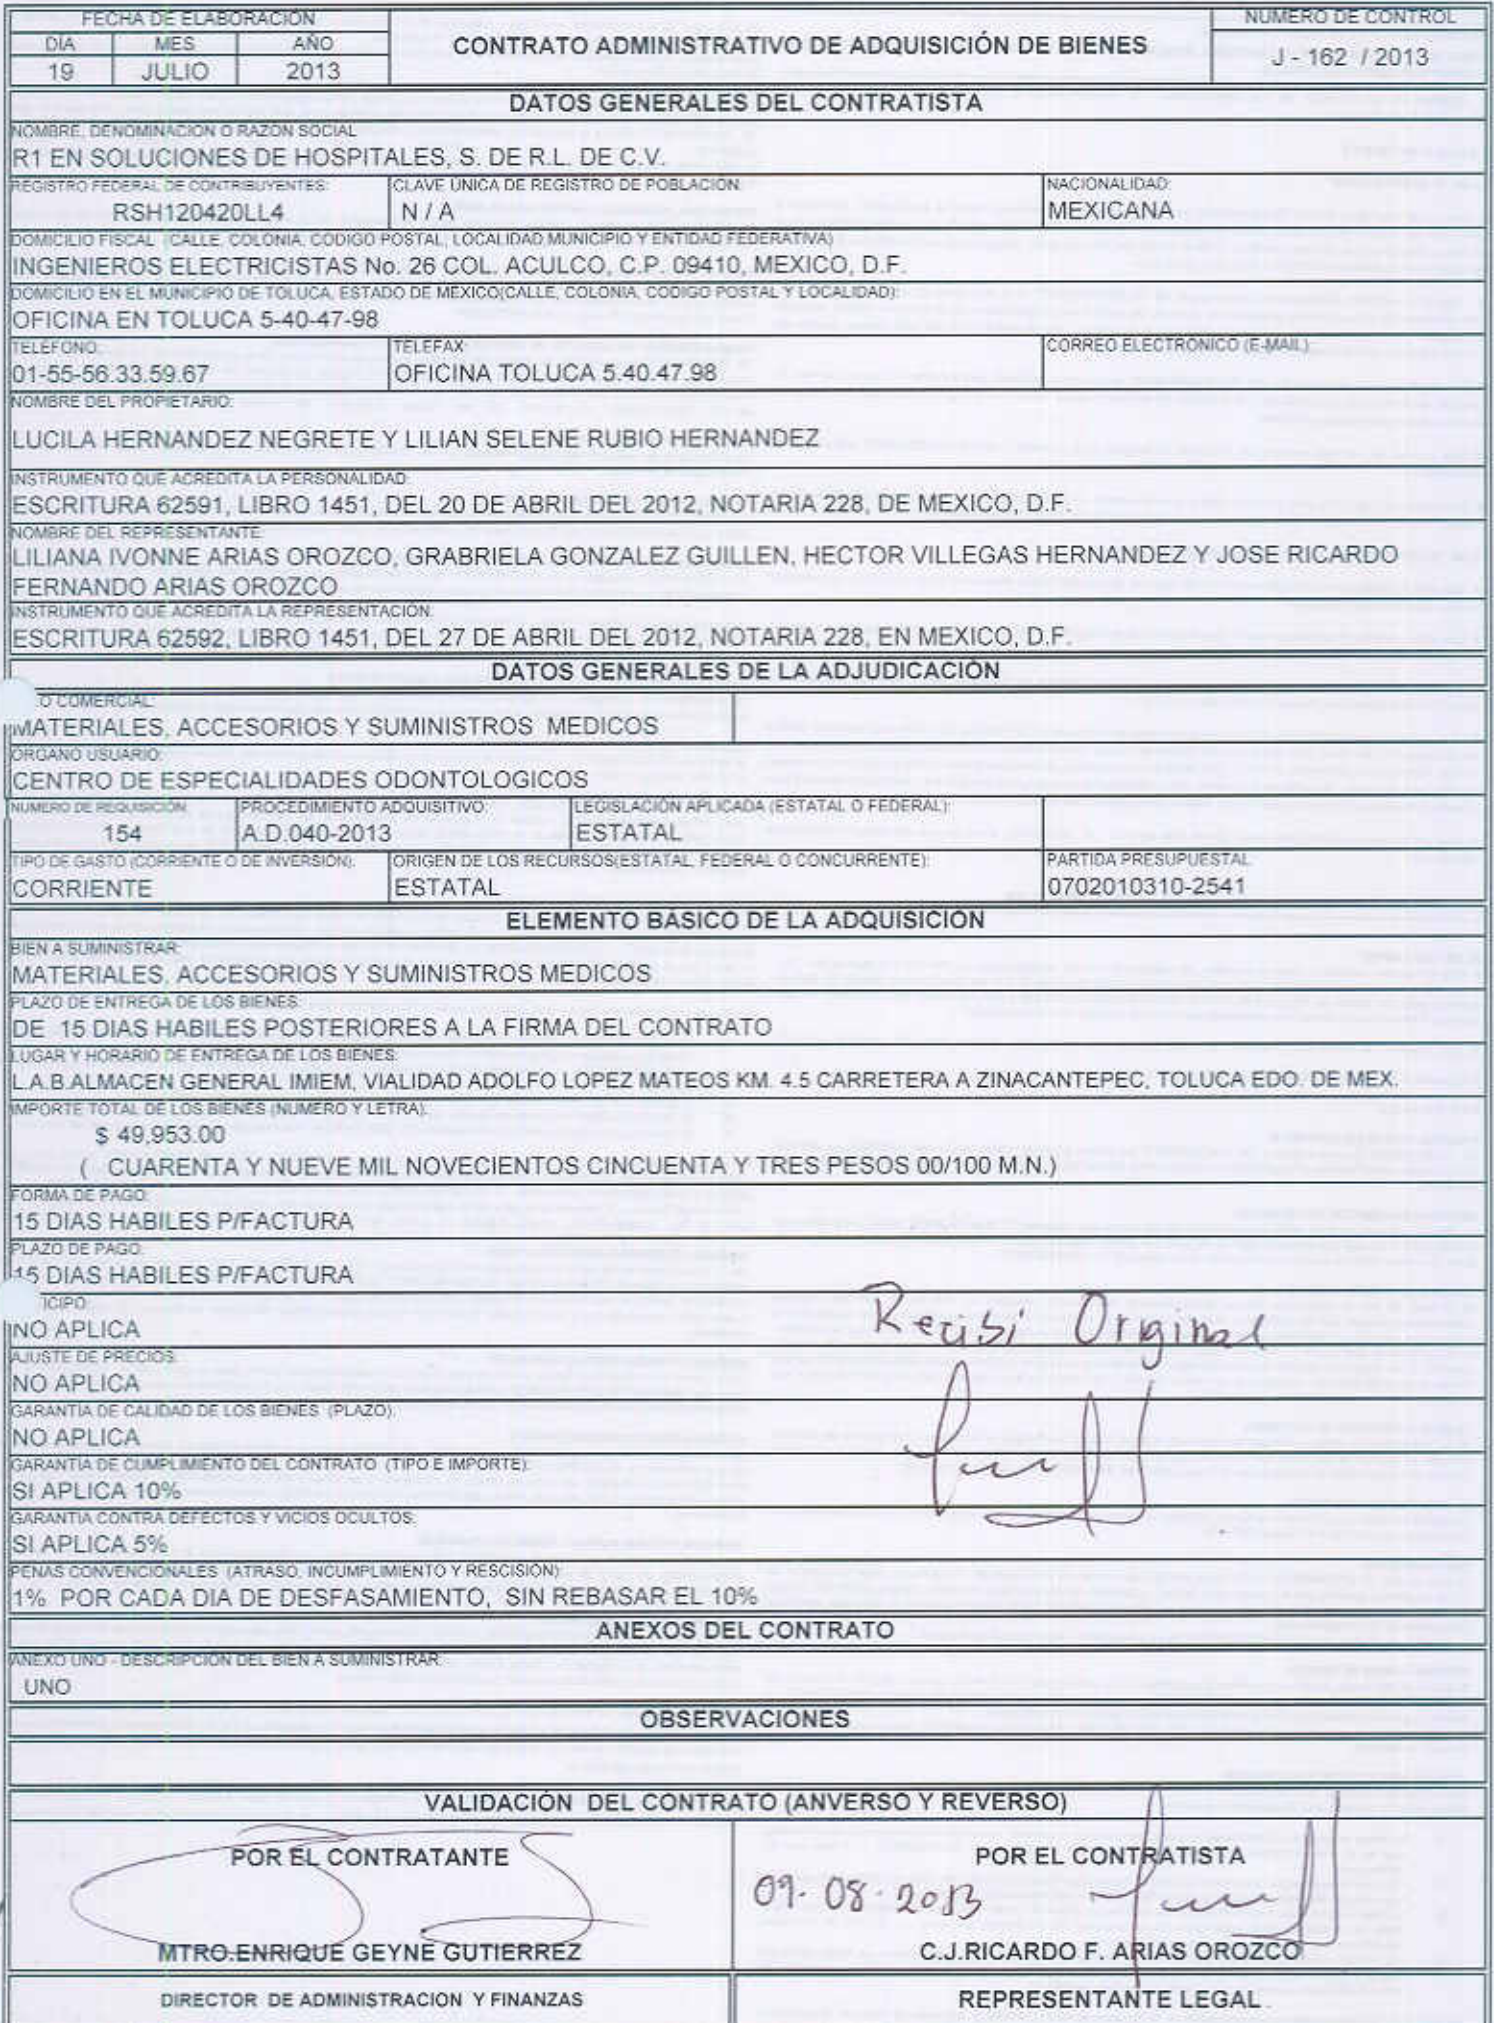 FECHA DE ELABORACIÓN
DÍA MES AÑO
19 JULIO 2013
CONTRATO ADMINISTRATIVO DE ADQUISICIÓN DE BIENES
NUMERO DE CONTROL
J - 162 / 2013
DATOS GENERALES DEL CONTRATISTA
NOMBRE, DENOMINACION O RAZON SOCIAL
R1 EN SOLUCIONES DE HOSPITALES, S. DE R.L. DE C.V.
REGISTRO FEDERAL DE CONTRIBUYENTES: CLAVE UNICA DE REGISTRO DE POBLACION: NACIONALIDAD:
RSH120420LL4 N / A MEXICANA
DOMICILIO FISCAL (CALLE, COLONIA, CODIGO POSTAL, LOCALIDAD MUNICIPIO Y ENTIDAD FEDERATIVA)
INGENIEROS ELECTRICISTAS No. 26 COL. ACULCO, C.P. 09410, MEXICO, D.F.
DOMICILIO EN EL MUNICIPIO DE TOLUCA, ESTADO DE MEXICO(CALLE, COLONIA, CODIGO POSTAL Y LOCALIDAD):
OFICINA EN TOLUCA 5-40-47-98
TELEFONO: TELEFAX: CORREO ELECTRONICO (E-MAIL):
01-55-56.33.59.67 OFICINA TOLUCA 5.40.47.98
NOMBRE DEL PROPIETARIO:
LUCILA HERNANDEZ NEGRETE Y LILIAN SELENE RUBIO HERNANDEZ
INSTRUMENTO QUE ACREDITA LA PERSONALIDAD:
ESCRITURA 62591, LIBRO 1451, DEL 20 DE ABRIL DEL 2012, NOTARIA 228, DE MEXICO, D.F.
NOMBRE DEL REPRESENTANTE:
LILIANA IVONNE ARIAS OROZCO, GRABRIELA GONZALEZ GUILLEN, HECTOR VILLEGAS HERNANDEZ Y JOSE RICARDO
FERNANDO ARIAS OROZCO
INSTRUMENTO QUE ACREDITA LA REPRESENTACIÓN:
ESCRITURA 62592, LIBRO 1451, DEL 27 DE ABRIL DEL 2012, NOTARIA 228, EN MEXICO, D.F.
DATOS GENERALES DE LA ADJUDICACIÓN
O COMERCIAL:
MATERIALES, ACCESORIOS Y SUMINISTROS MEDICOS
ORGANO USUARIO:
CENTRO DE ESPECIALIDADES ODONTOLOGICOS
NUMERO DE REQUISICIÓN: PROCEDIMIENTO ADQUISITIVO: LEGISLACIÓN APLICADA (ESTATAL O FEDERAL):
154 A.D.040-2013 ESTATAL
TIPO DE GASTO (CORRIENTE O DE INVERSIÓN): ORIGEN DE LOS RECURSOS(ESTATAL, FEDERAL O CONCURRENTE): PARTIDA PRESUPUESTAL
CORRIENTE ESTATAL 0702010310-2541
ELEMENTO BÁSICO DE LA ADQUISICIÓN
BIEN A SUMINISTRAR:
MATERIALES, ACCESORIOS Y SUMINISTROS MEDICOS
PLAZO DE ENTREGA DE LOS BIENES:
DE 15 DIAS HABILES POSTERIORES A LA FIRMA DEL CONTRATO
LUGAR Y HORARIO DE ENTREGA DE LOS BIENES:
L.A.B ALMACEN GENERAL IMIEM, VIALIDAD ADOLFO LOPEZ MATEOS KM. 4.5 CARRETERA A ZINACANTEPEC, TOLUCA EDO. DE MEX.
IMPORTE TOTAL DE LOS BIENES (NUMERO Y LETRA):
$ 49,953.00
( CUARENTA Y NUEVE MIL NOVECIENTOS CINCUENTA Y TRES PESOS 00/100 M.N.)
FORMA DE PAGO:
15 DIAS HABILES P/FACTURA
PLAZO DE PAGO:
15 DIAS HABILES P/FACTURA
ICIPO:
NO APLICA
Recibi Original
AJUSTE DE PRECIOS:
NO APLICA
GARANTIA DE CALIDAD DE LOS BIENES (PLAZO):
NO APLICA
GARANTÍA DE CUMPLIMIENTO DEL CONTRATO (TIPO E IMPORTE):
SI APLICA 10%
GARANTIA CONTRA DEFECTOS Y VICIOS OCULTOS:
SI APLICA 5%
PENAS CONVENCIONALES (ATRASO, INCUMPLIMIENTO Y RESCISIÓN):
1% POR CADA DIA DE DESFASAMIENTO, SIN REBASAR EL 10%
ANEXOS DEL CONTRATO
ANEXO UNO - DESCRIPCIÓN DEL BIEN A SUMINISTRAR:
UNO
OBSERVACIONES
VALIDACIÓN DEL CONTRATO (ANVERSO Y REVERSO)
POR EL CONTRATANTE POR EL CONTRATISTA
09-08-2013
MTRO.ENRIQUE GEYNE GUTIERREZ C.J.RICARDO F. ARIAS OROZCO
DIRECTOR DE ADMINISTRACION Y FINANZAS REPRESENTANTE LEGAL